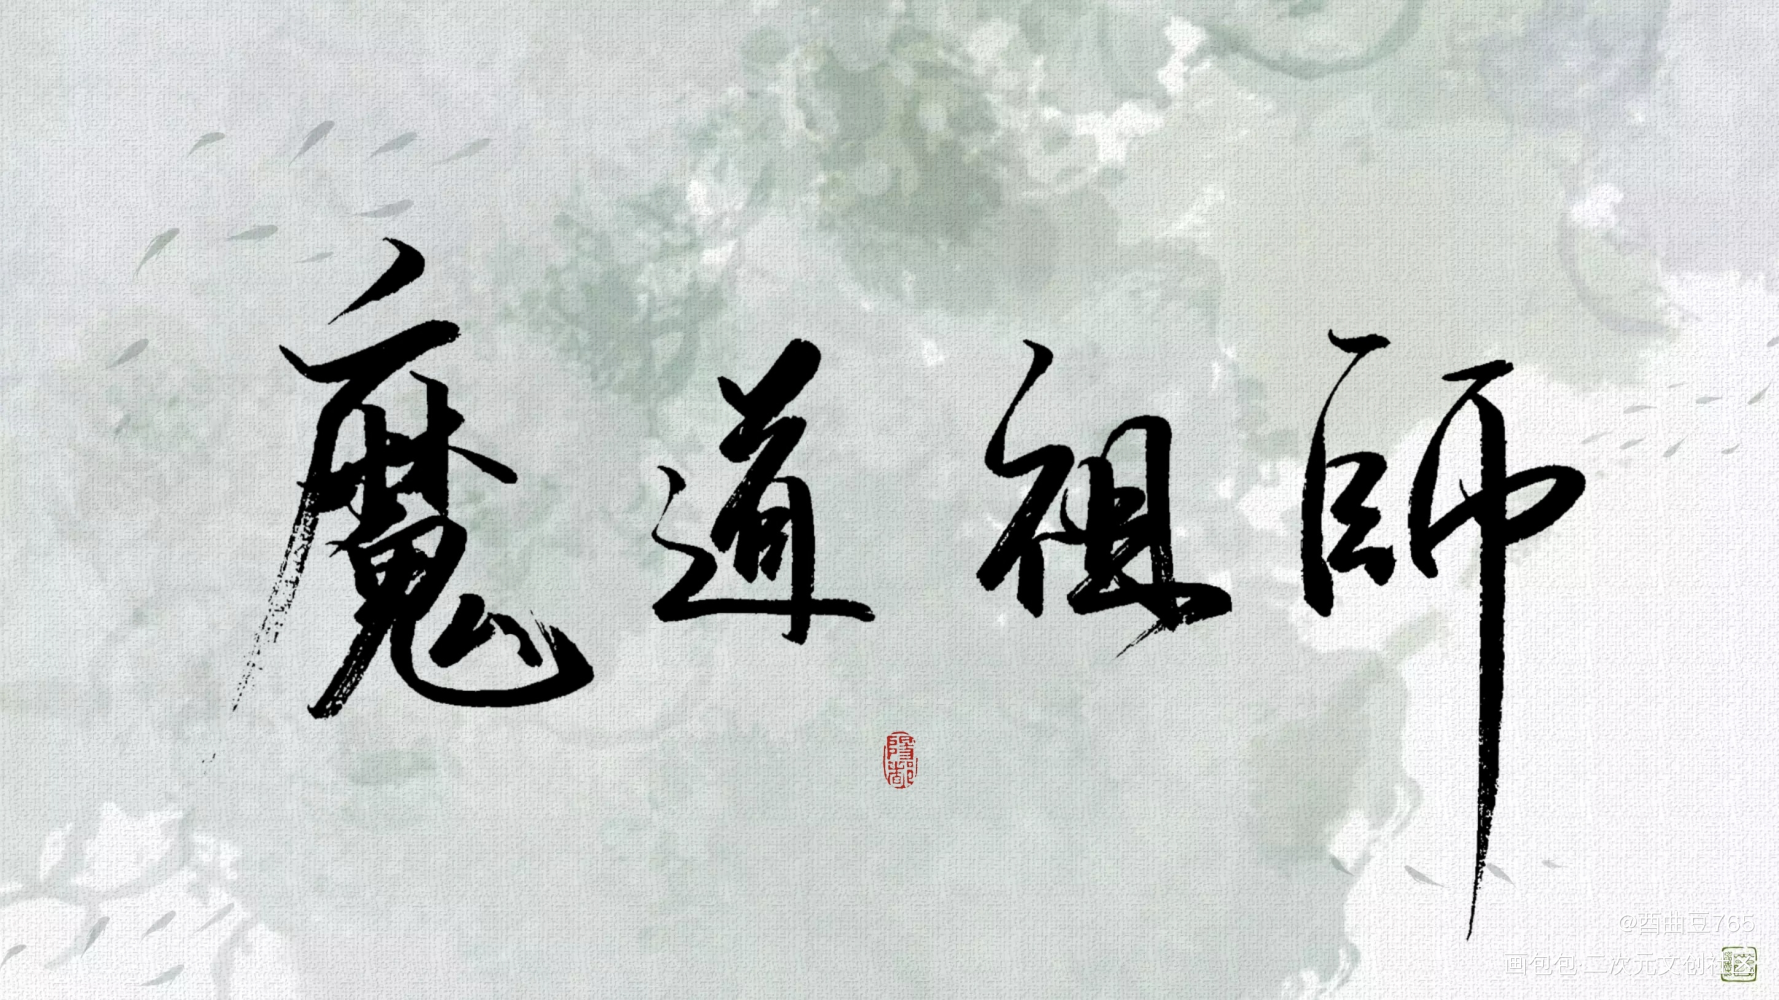 魔道祖師
@酉曲豆765
画包包·二次元文创社区